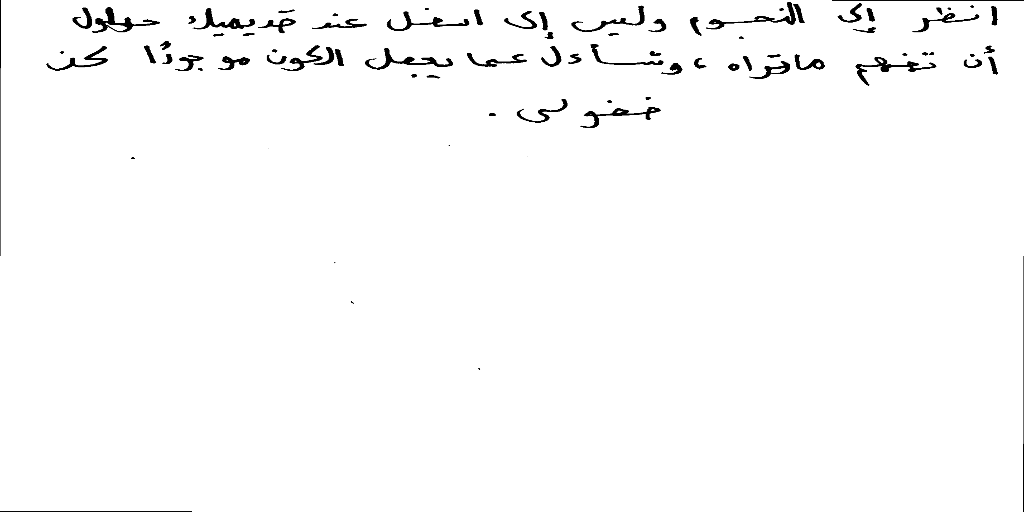 انظر إلى النجوم وليس إلى اسفل عند قديميك حاول
أن تفهم ماتراه ، وتسأءل عما يجعل الكون موجودًا كن
فضولى .